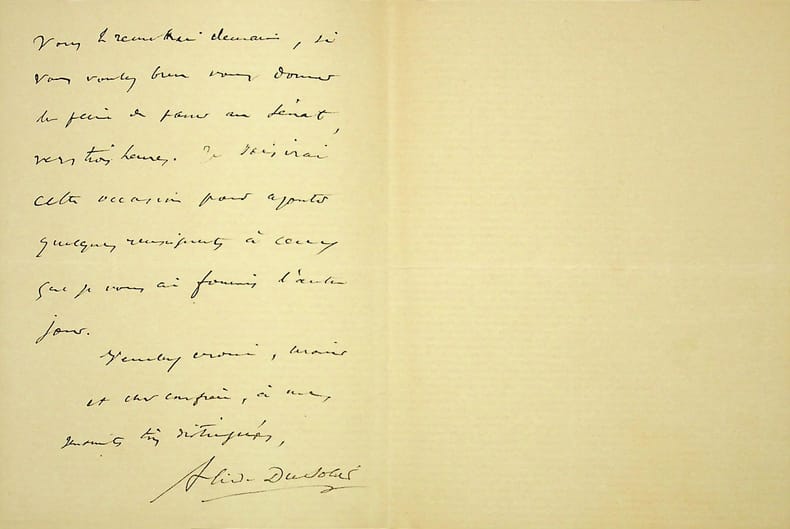 vous remettrai demain, si
vous voulez bien vous donner
la peine de passer au Sénat,
vers trois heures. Je saisirai
cette occasion pour ajouter
quelques renseignts à ceux
que je vous ai fournis l'autre
jour.
Veuillez croire,
et cher confrère, à mes
sentiments très distingués,